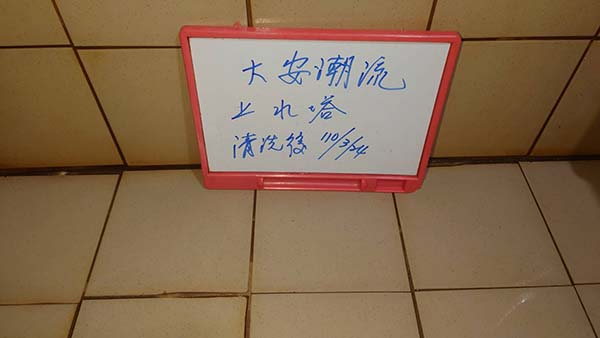 大安潮流
上水塔
清洗後 110/3/24